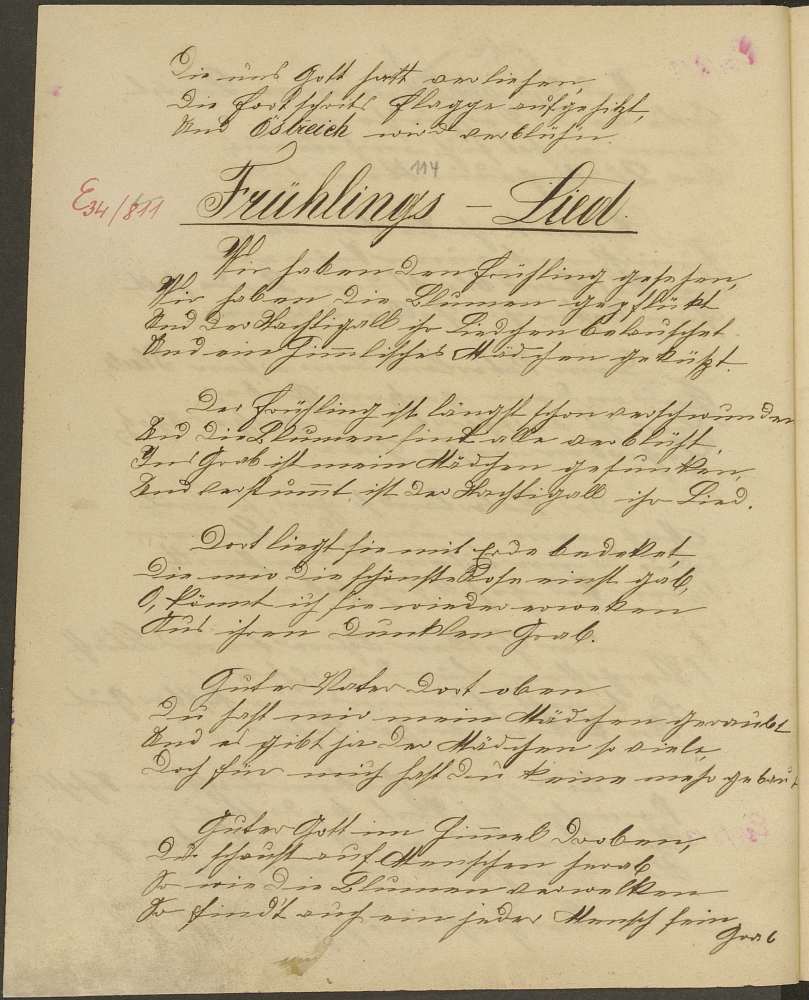 Die uns Gott hatt verliehen,
Die Fortschrits Flagge aufgehißt,
Und Östreich wird verblühn.
114
E34/811
Frühlings – Lied.
Wir haben den Frühling gesehen,
Wir haben die Blumen gepflükt
Und der Nachtigall ihr Liedchen belauschet
Und ein himmlisches Mädchen geküßt.
Der Frühling ist längst schon verschwunden
Und die Blumen sint alle verblüht,
Ins Grab ist mein Mädchen gesunken,
Und verstummt ist der Nachtigall ihr Lied.
Dort liegt sie mit Erde bedeket,
Die mir die schönste Rose einst gab,
O, könnt ich sie wieder erweken
Aus ihren dunklen Grab.
Guter Vater dort oben
Du hast mir mein Mädchen geraubt
Und es gibt ja der Mädchen so viele,
Doch für mich hast du keine mehr gebaut
Guter Gott im Himmel droben,
Du schaust auf Menschen herab
So wie die Blumen verwelken
So find't auch ein jeder Mensch sein
Grab